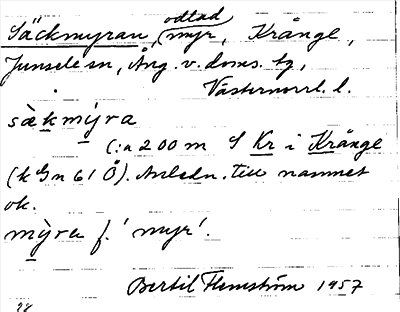 Säckmyran, odlad myr, Krånge,
Junsele sn, Ång. v. doms. tg,
Västernorrl. l.
sàkmýra
(: a 200 m S Kr i Krånge
(k G n 61 Ö). Anledn. till namnet
ok.
mỳra f. 'myr'.
Bertil Flemström 1957